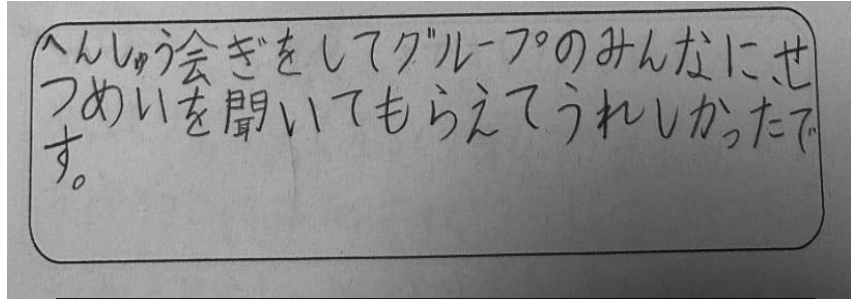 へんしゅう会ぎをしてグループのみんなに、せ
つめいを聞いてもらえてうれしかったで
す。